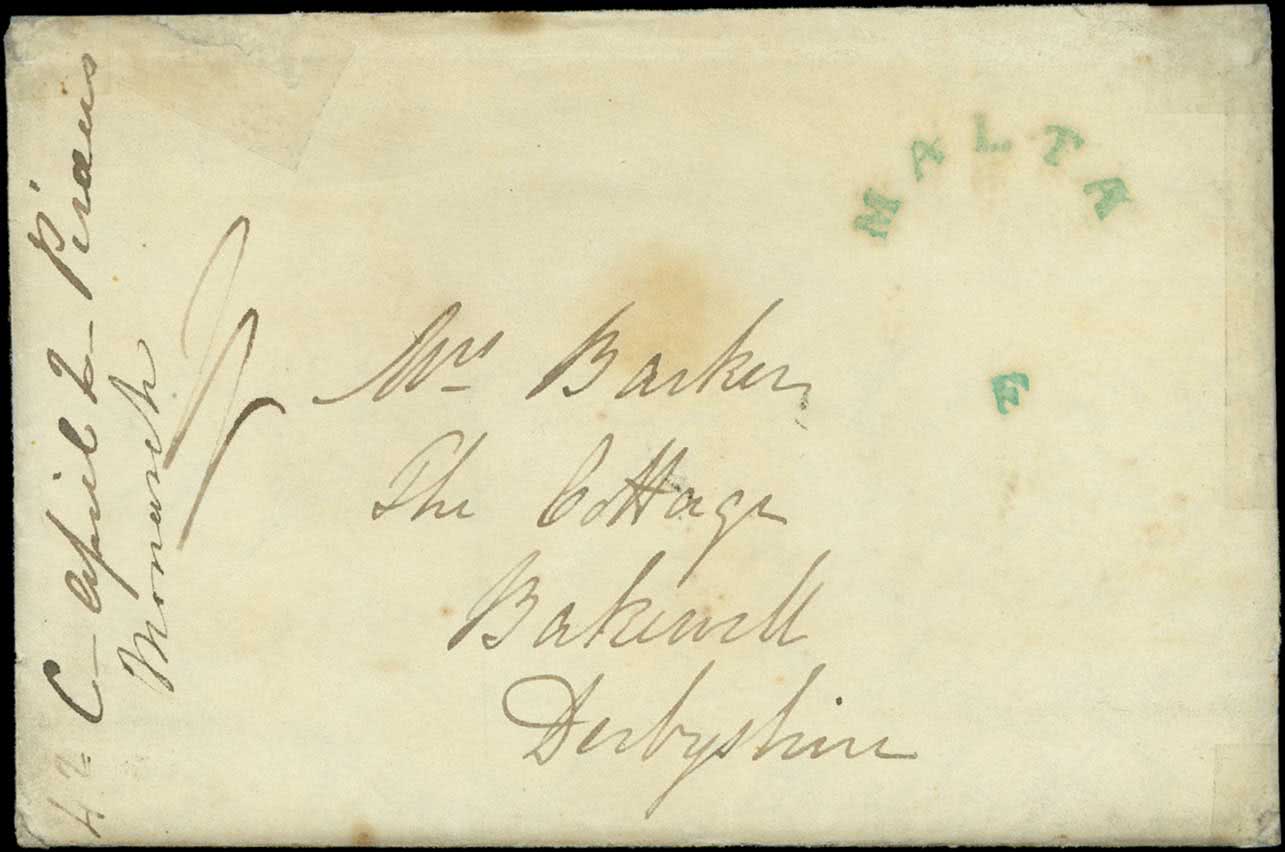 MALTA
E
Mrs Barker
The Cottage
Bakewell
Derbyshire
C - April 2 - Piraeus
Monarch